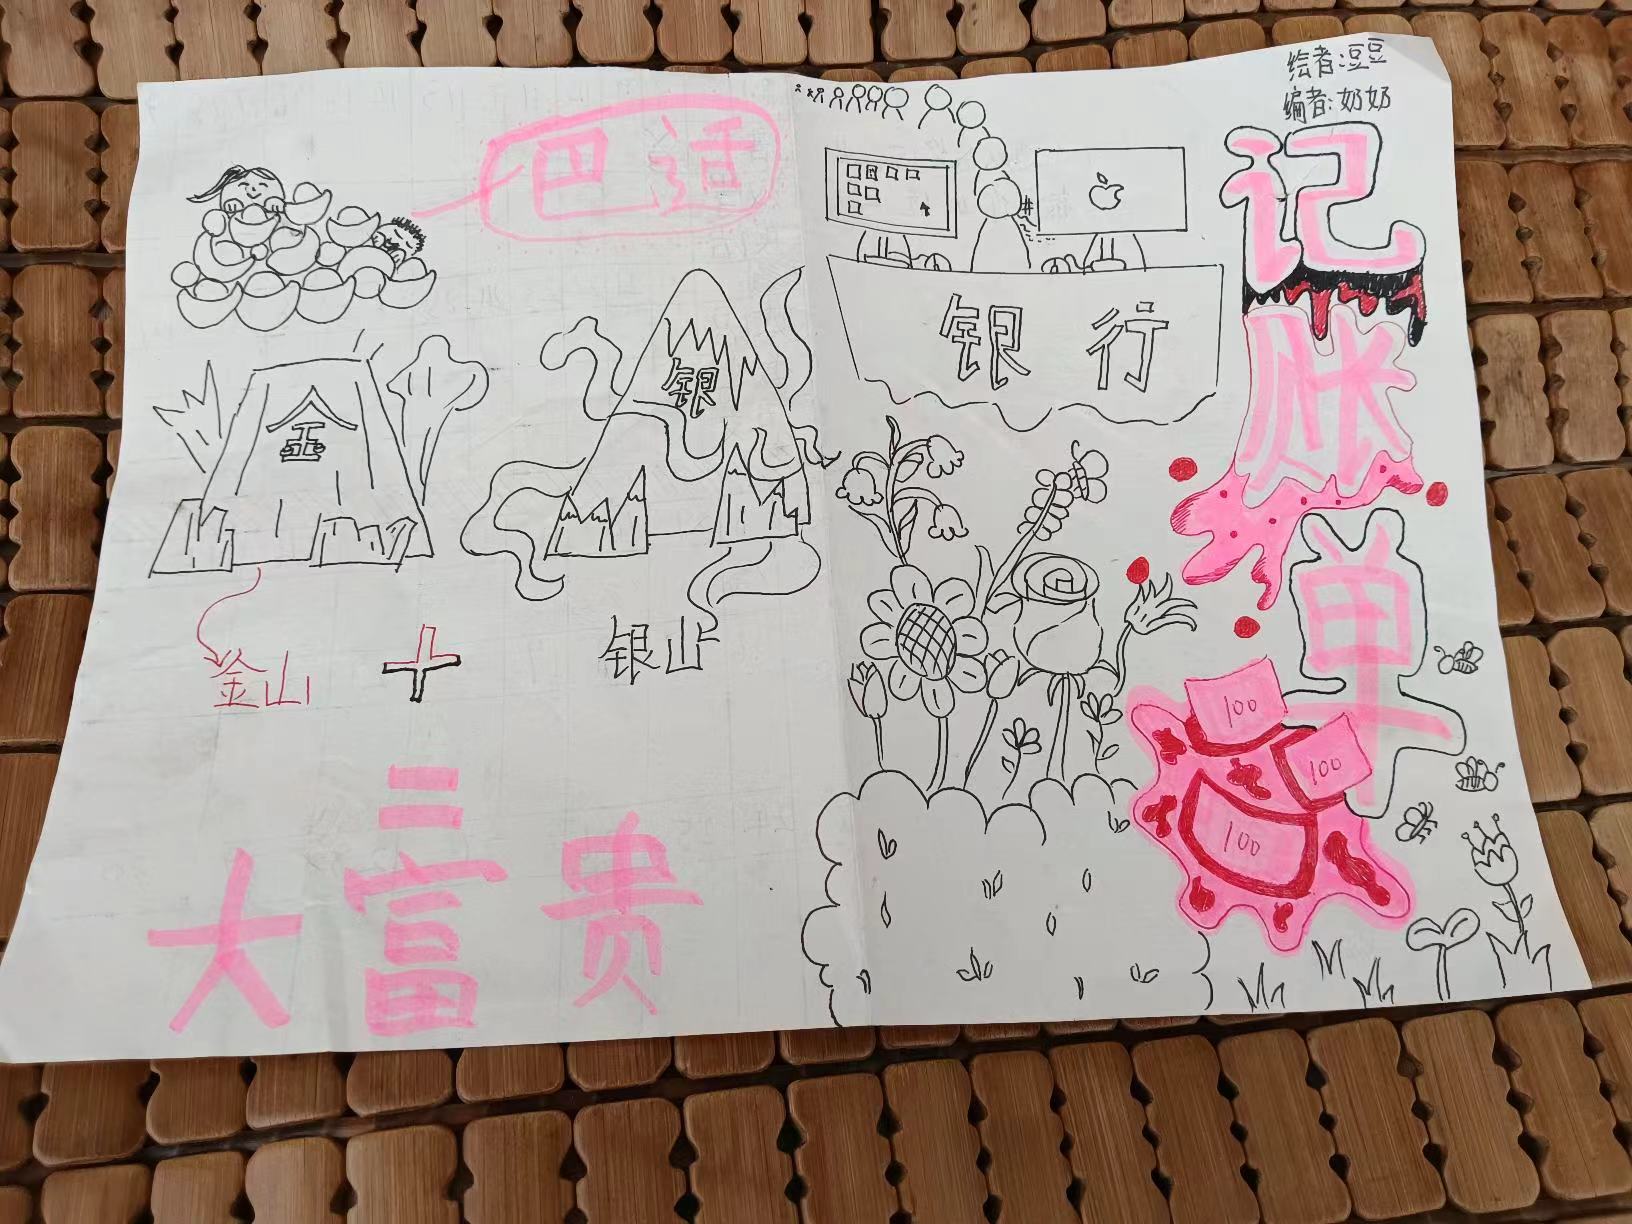 绘者:豆豆
编者:奶奶
记账单
巴适
银行
金
银
金山 + 银山
=
大富贵
100
100
100